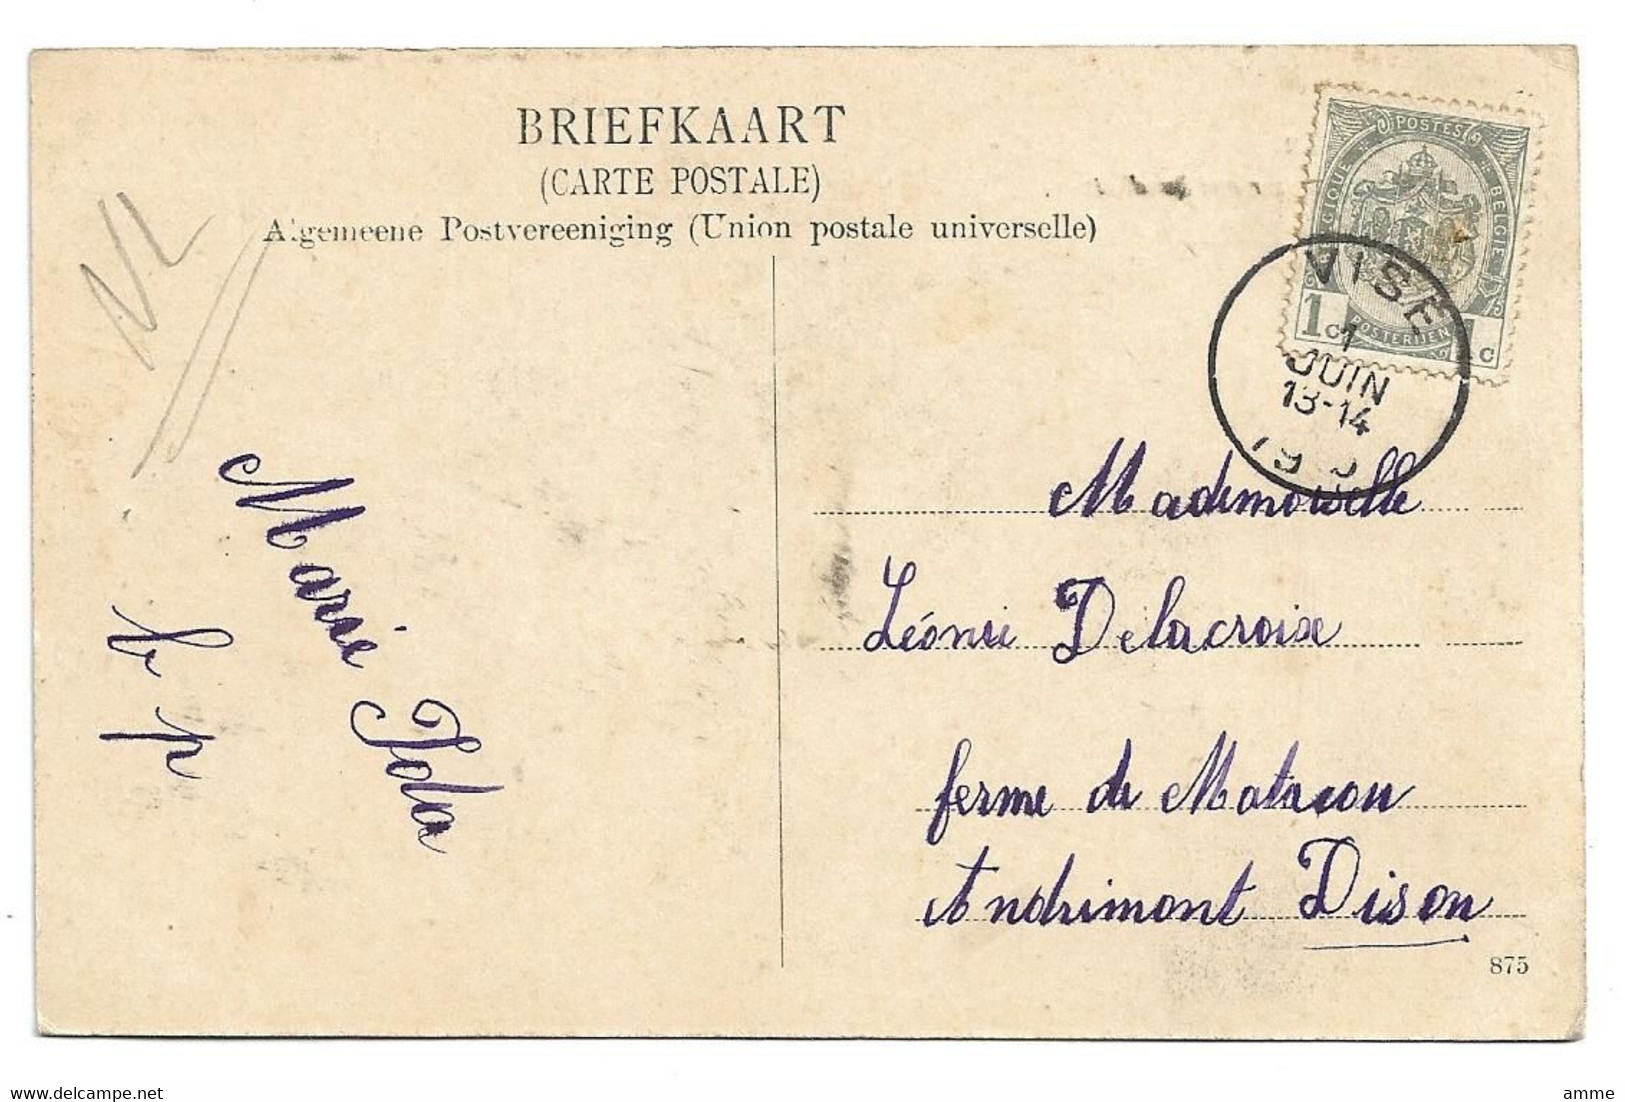 BRIEFKAART
(CARTE POSTALE)
Algemeene Postvereeniging (Union postale universelle)
NL
POSTES
BELGIQUE
BELGIË
POSTERIJEN
1c
1c
VISÉ
1
JUIN
13-14
Mademoiselle
Léonie Delacroix
ferme de Matacou
Andrimont Dison
Marie Ida
b p
875
www.delcampe.net
amme